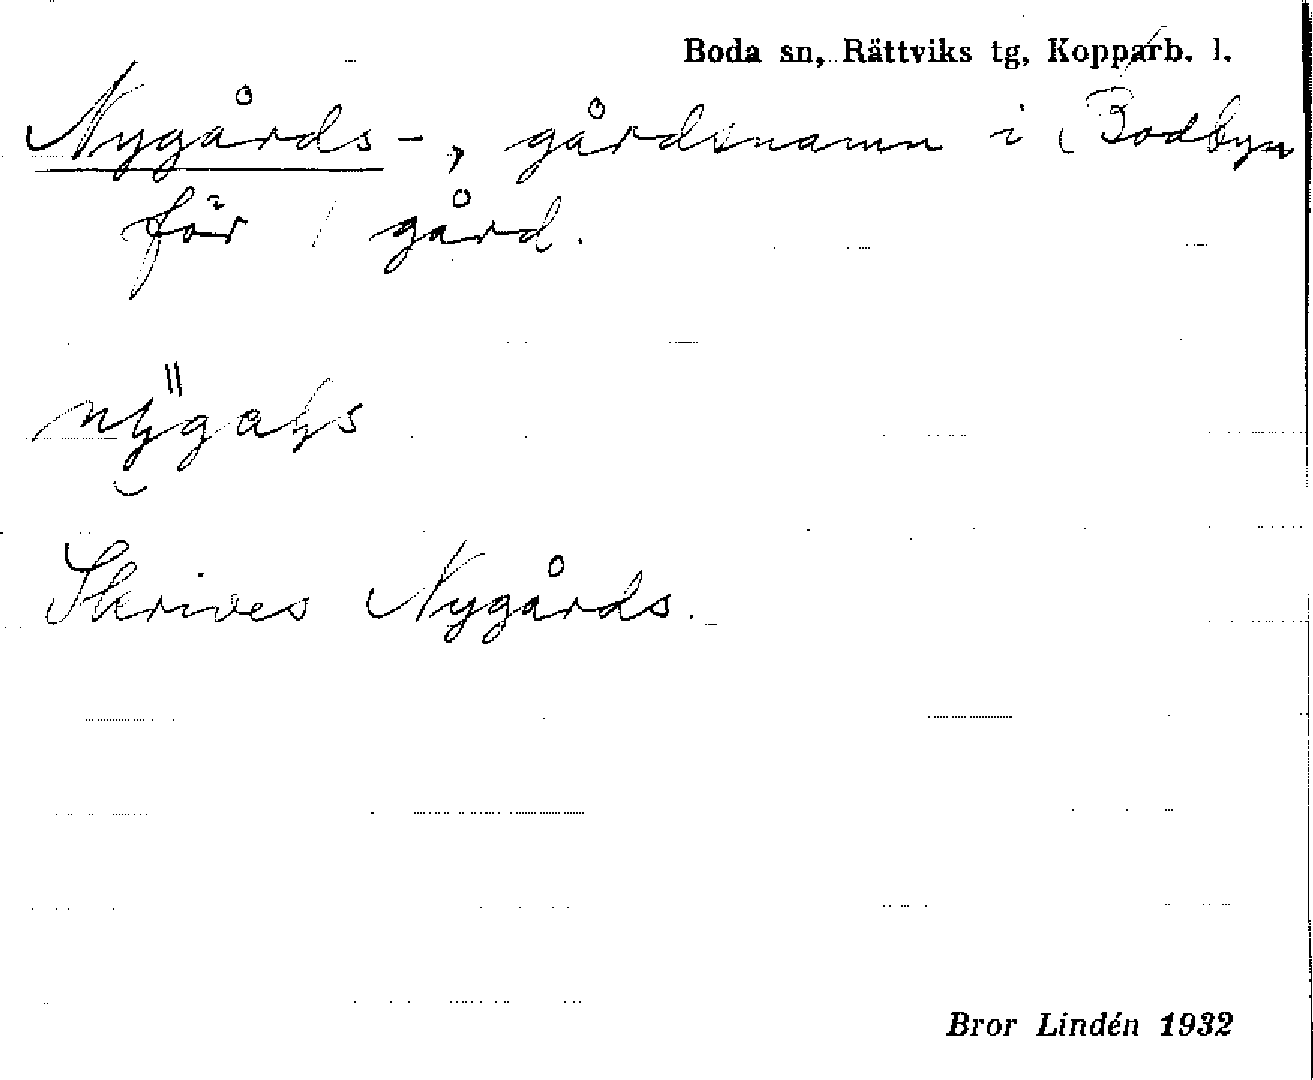 Boda sn, Rättviks tg, Kopparb. l.
Nygårds-, gårdsnamn i Bodbyn
för 1 gård.
Skrives Nygårds.
Bror Lindén 1932